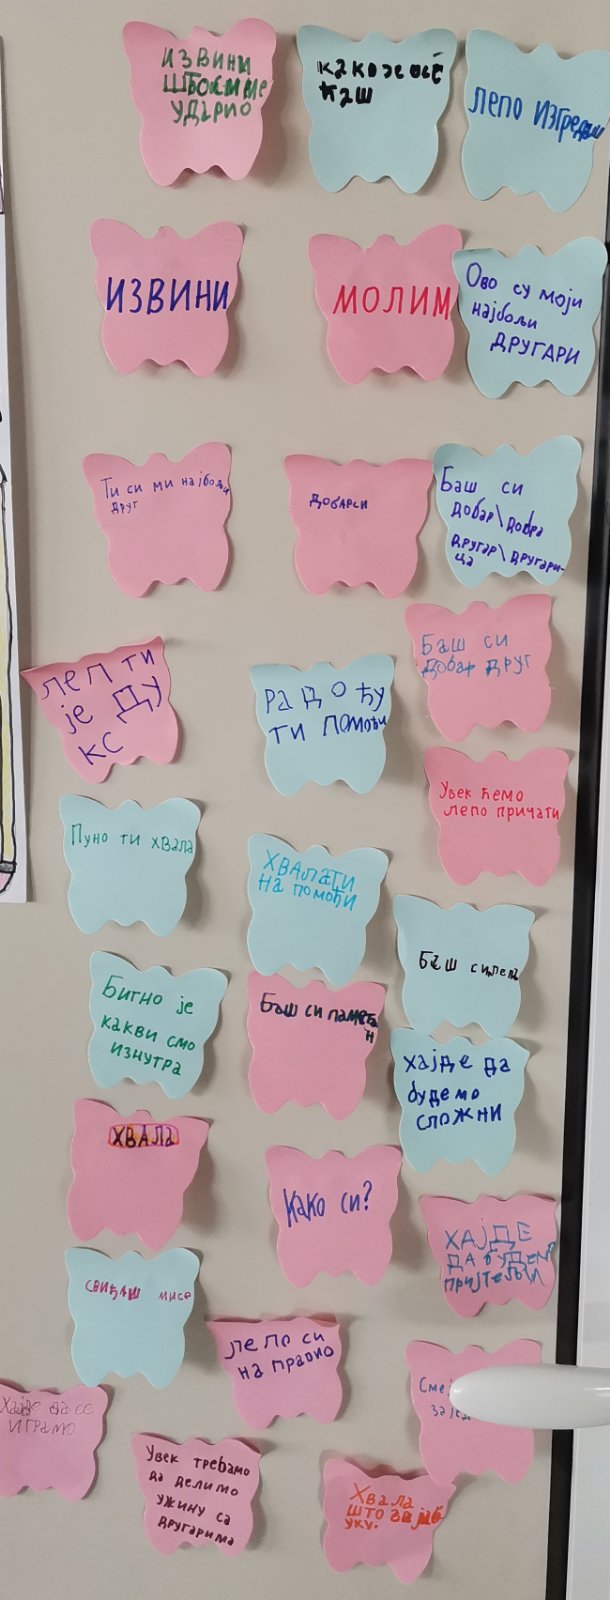 ИЗВИНИ
ШТОСИМЕ
УДАРИО
КАКО ЈЕ ОСЕ
ЋАШ
ЛЕПО ИЗГЛЕДАШ
ИЗВИНИ
МОЛИМ
Ово су моји
најбољи
ДРУГАРИ
Ти си ми најбољи
друг
ДОБАРСИ
Баш си
добар\добра
другар\другари-
ца
Баш си
добар друг
леп ти
је ДУ
КС
РаДОЋУ
ТИ ПОМОЋИ
Увек ћемо
лепо причати
Пуно ти хвала
ХВАЛАТИ
На помоћи
Баш силепа
Битно је
какви смо
изнутра
Баш си памета
н
хајде да
будемо
сложни
ХВАЛА
Како си?
ХАЈДЕ
ДА БУДЕМО
ПРИЈТЕЉИ
СВИЂАШ МИСЕ
лепо си
на правио
Сме
зајед
Хајде да се
играмо
Увек требамо
да делимо
ужину са
другарима
Хвала
што за јаб
уку.